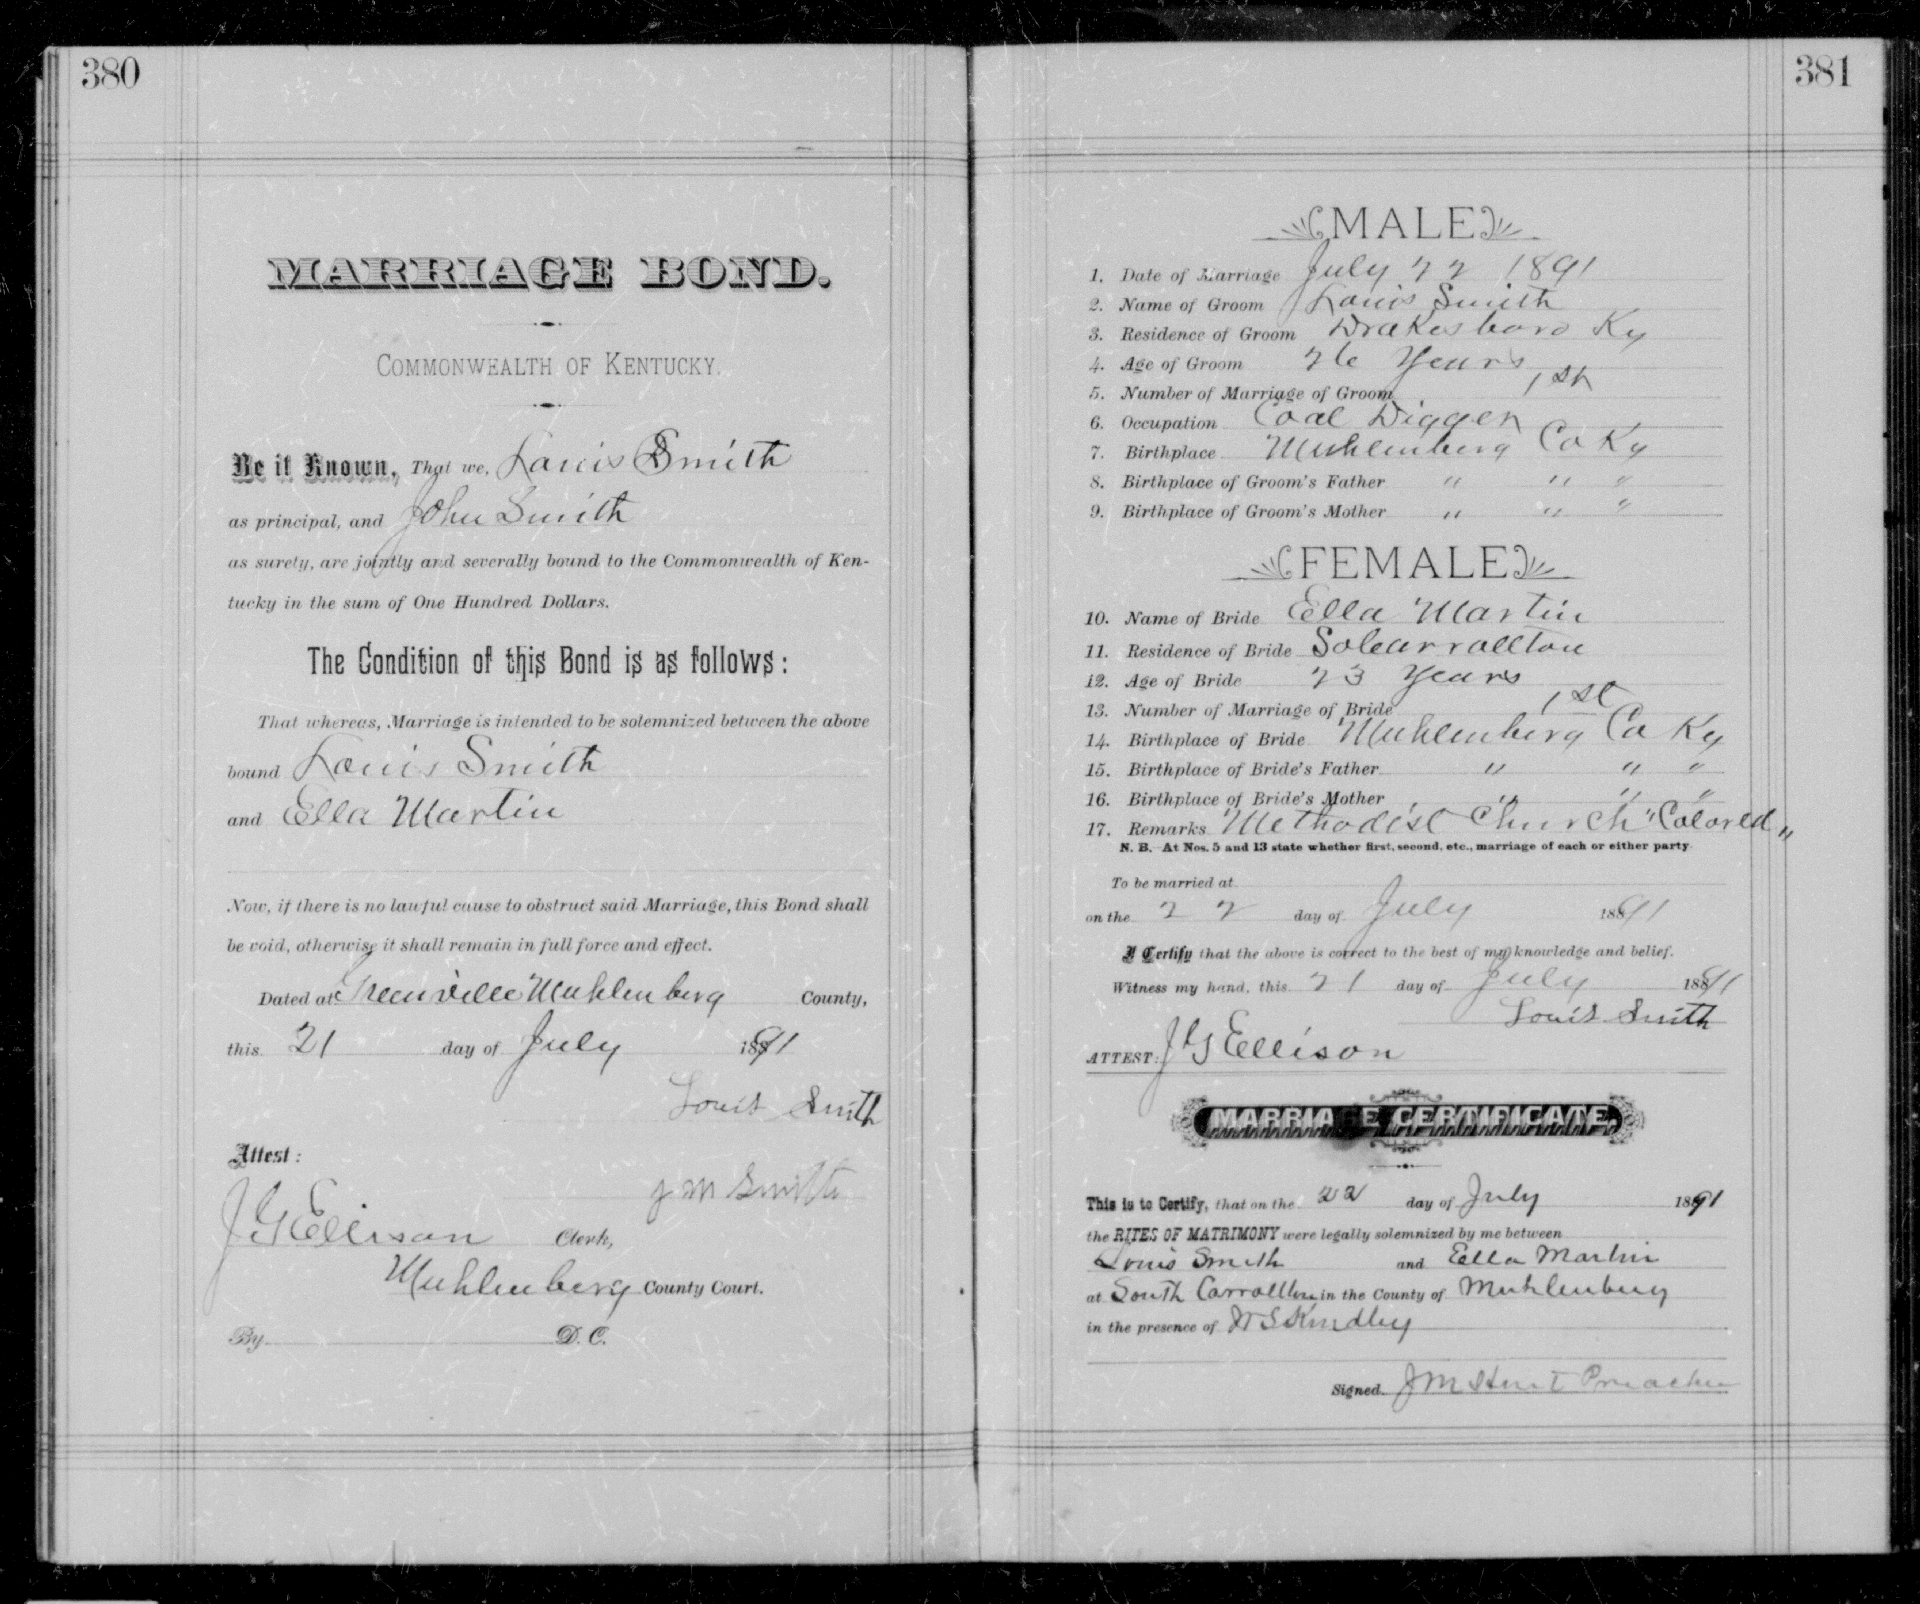 380
MARRIAGE BOND.
COMMONWEALTH OF KENTUCKY.
Be it Known, That we, Louis Smith
as principal, and John Smith
as surety, are jointly and severally bound to the Commonwealth of Ken-
tucky in the sum of One Hundred Dollars.
The Condition of this Bond is as follows:
That whereas, Marriage is intended to be solemnized between the above
bound Louis Smith
and Ella Martin
Now, if there is no lawful cause to obstruct said Marriage, this Bond shall
be void, otherwise it shall remain in full force and effect.
Dated at Greenville Muhlenberg County,
this 21 day of July 1891
Louis Smith
Attest:
J M Smith
J G Ellison Clerk,
Muhlenberg County Court.
By D. C.
381
MALE
1. Date of Marriage July 22 1891
2. Name of Groom Louis Smith
3. Residence of Groom Drakesboro Ky
4. Age of Groom 26 Years
5. Number of Marriage of Groom 1st
6. Occupation Coal Digger
7. Birthplace Muhlenberg Co Ky
8. Birthplace of Groom's Father " " "
9. Birthplace of Groom's Mother " " "
FEMALE
10. Name of Bride Ella Martin
11. Residence of Bride So Carrollton
12. Age of Bride 23 Years
13. Number of Marriage of Bride 1st
14. Birthplace of Bride Muhlenberg Co Ky
15. Birthplace of Bride's Father " " "
16. Birthplace of Bride's Mother " " "
17. Remarks Methodist Church "Colored"
N. B. At Nos. 5 and 13 state whether first, second, etc., marriage of each or either party
To be married at
on the 22 day of July 1891
I Certify that the above is correct to the best of my knowledge and belief.
Witness my hand, this 21 day of July 1891
Louis Smith
ATTEST: J G Ellison
MARRIAGE CERTIFICATE.
This is to Certify, that on the 22 day of July 1891
the RITES OF MATRIMONY were legally solemnized by me between
Louis Smith and Ella Martin
at South Carrollton in the County of Muhlenberg
in the presence of
Signed J M Hunt Preacher